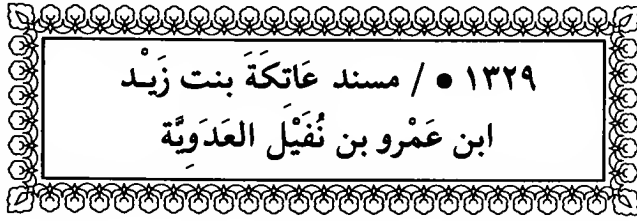 ١٣٢٩ ● / مسند عَاتِكَةَ بنت زَيْد
ابن عَمْرو بن نُفَيْل العَدَوِيَّة